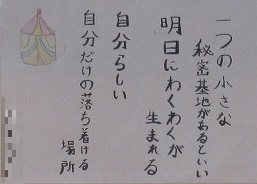 一つの小さな
秘密基地があるといい
明日にわくわくが
生まれる
自分らしい
自分だけの落ち着ける
場所